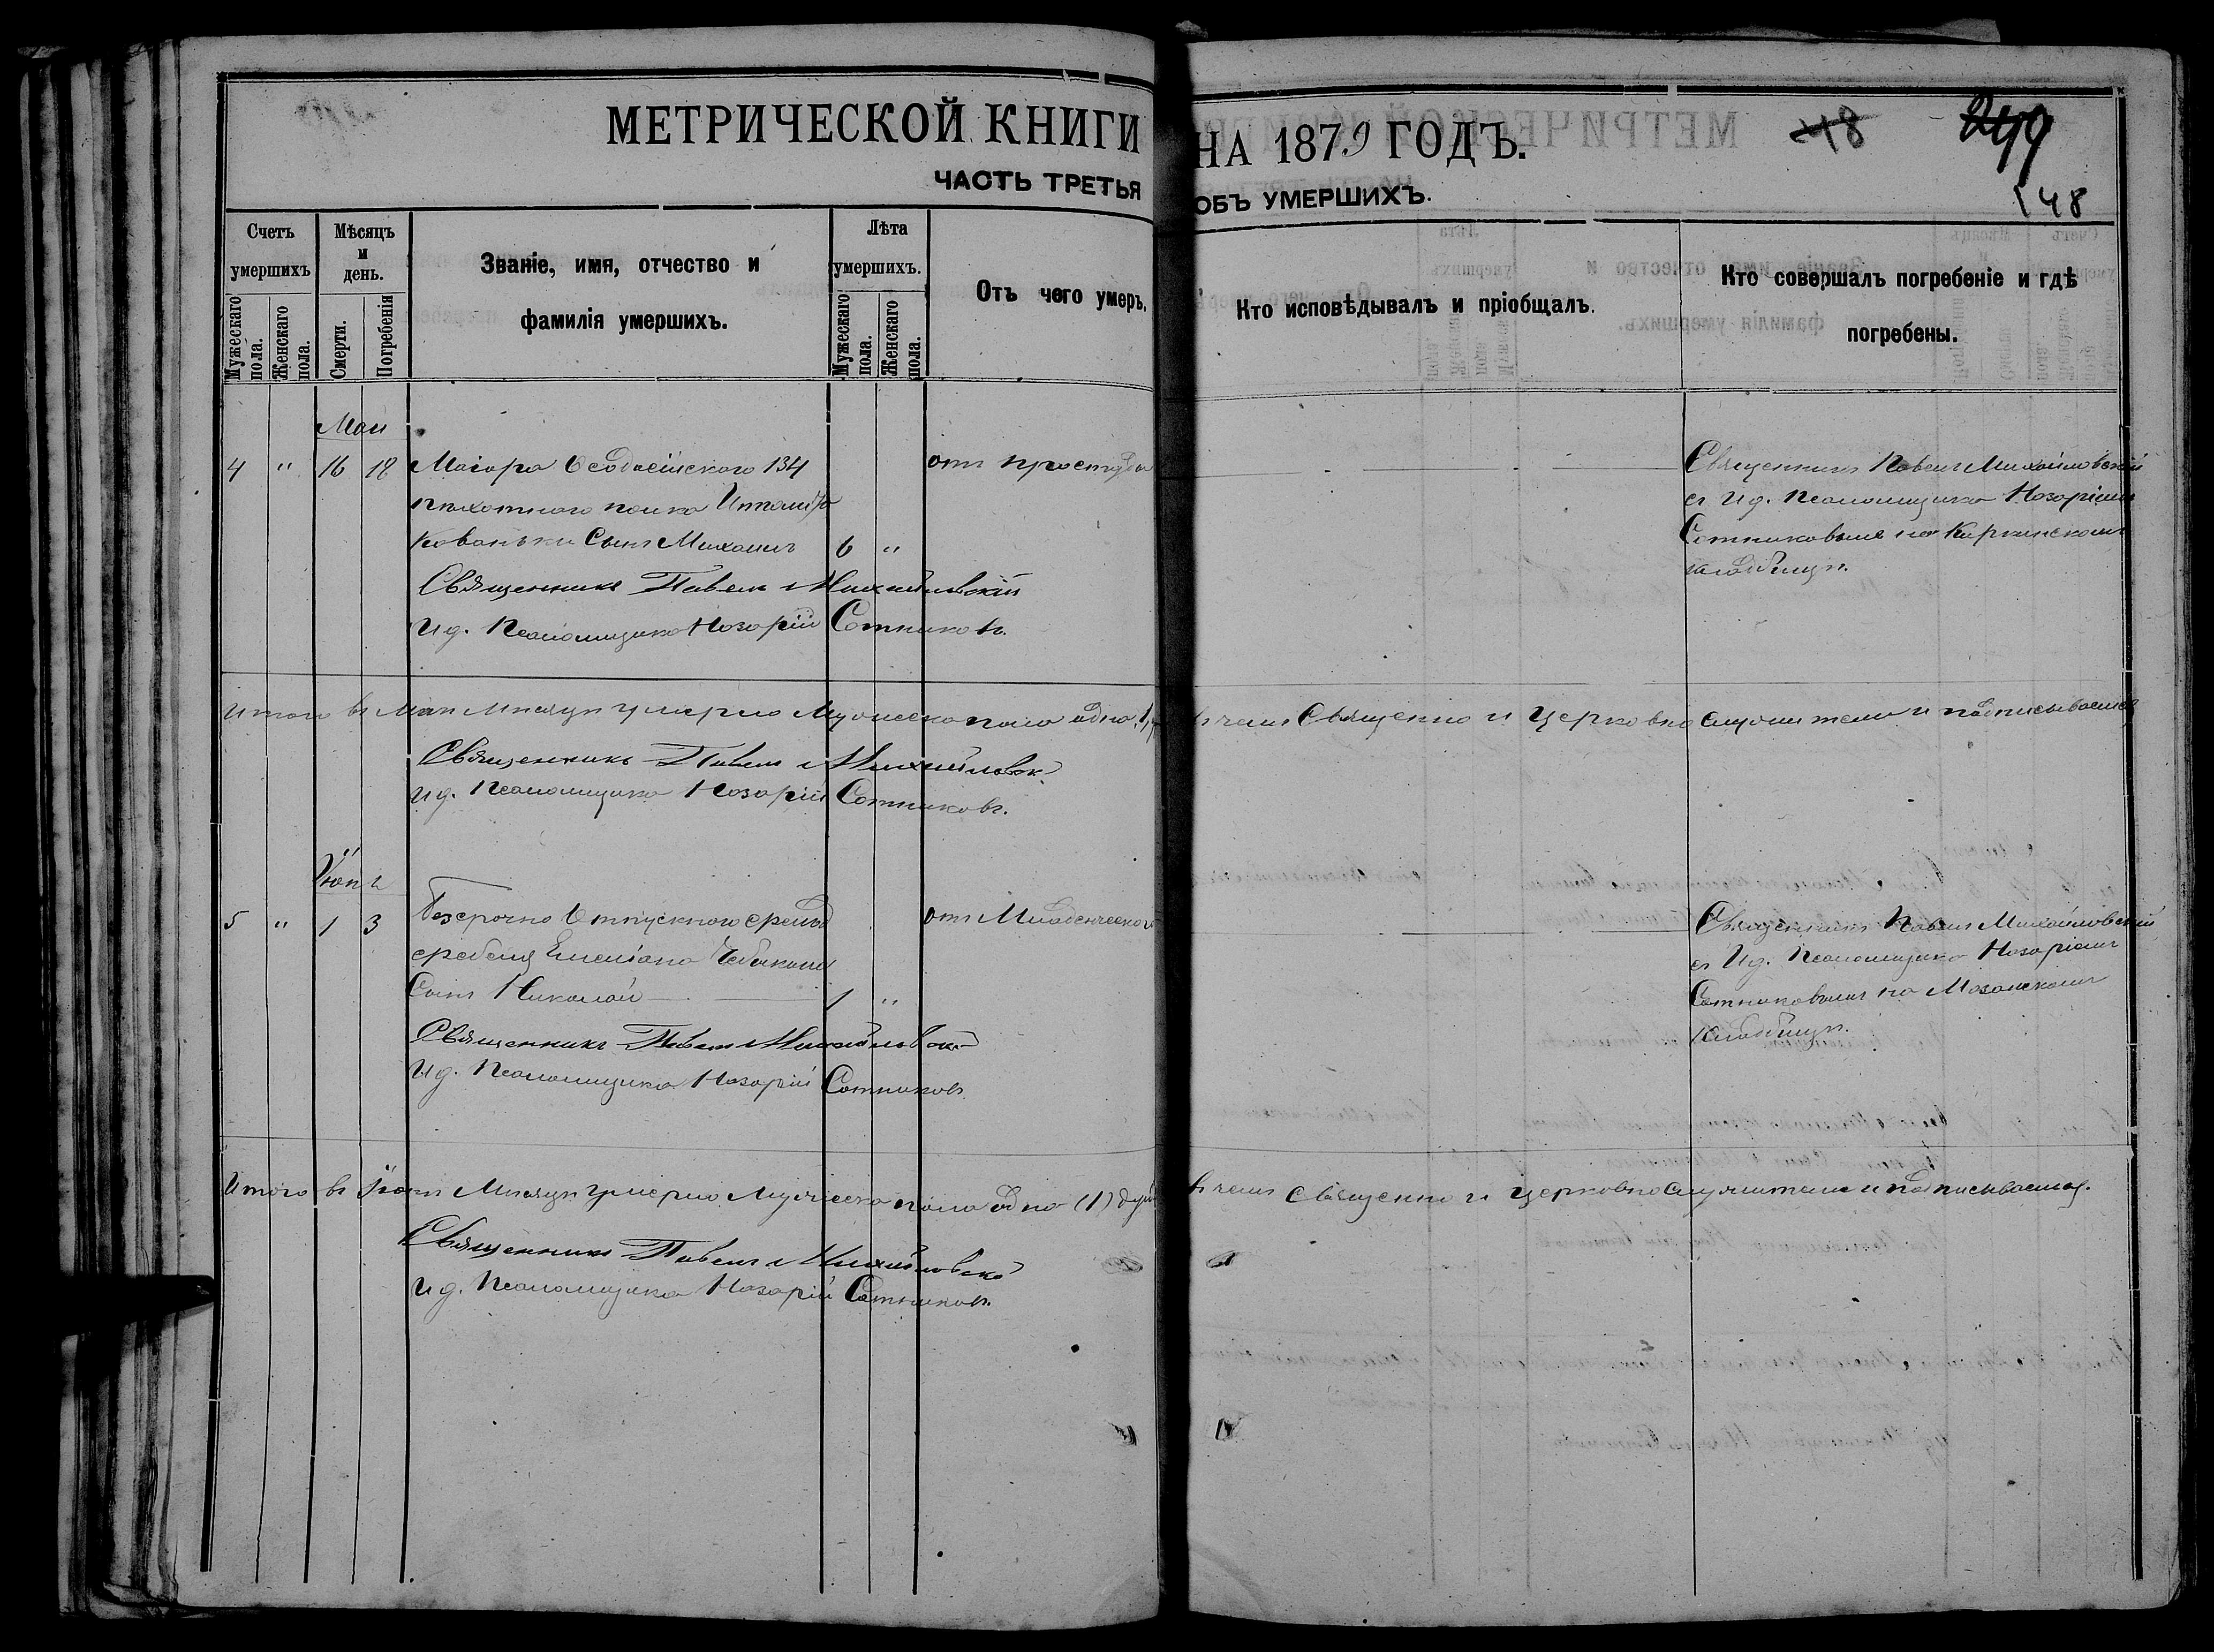 МЕТРИЧЕСКОЙ КНИГИ НА 1879 ГОДЪ.
48
299
148
ЧАСТЬ ТРЕТЬЯ ОБЪ УМЕРШИХЪ.
Счетъ умершихъ
Мужескаго пола.
Женскаго пола.
Мѣсяцъ и день.
Смерти.
Погребенія
Званіе, имя, отчество и фамилія умершихъ.
Лѣта умершихъ.
Мужескаго пола.
Женскаго пола.
Отъ чего умеръ.
Кто исповѣдывалъ и пріобщалъ.
Кто совершалъ погребеніе и гдѣ погребены.
Маи
4 " 16 18 Маіора Ѳеодосійского 134
пѣхотного полка
Сынъ Михаилъ 6 "
отъ простуды
Священникъ Павелъ Михайловскій
съ Ид. Псаломщика Назаріемъ
Сотниковымъ на
кладбищѣ.
Священникъ Павелъ Михайловскій
Ид. Псаломщика Назарій Сотниковъ.
Итого въ Маи Мѣсяцѣ умерло Мужеска пола одна (1)
въ чемъ Священно и Церковно служители и подписываемся
Священникъ Павелъ Михайловск
Ид. Псаломщика Назарій Сотниковъ.
Іюнь
5 " 1 3 Безсрочно Отпускного
Емеліана
Сынъ Николай 1 "
отъ Младенческой
Священникъ Павелъ Михайловскій
съ Ид. Псаломщика Назаріемъ
Сотниковымъ на
Кладбищѣ.
Священникъ Павелъ Михайловск
Ид. Псаломщика Назарій Сотниковъ
Итого въ Іюнѣ Мѣсяцѣ умерло Мужеска пола одна (1) душа
въ чемъ священно и церковно служители и подписываемся.
Священникъ Павелъ Михайловск
Ид. Псаломщика Назарій Сотниковъ.